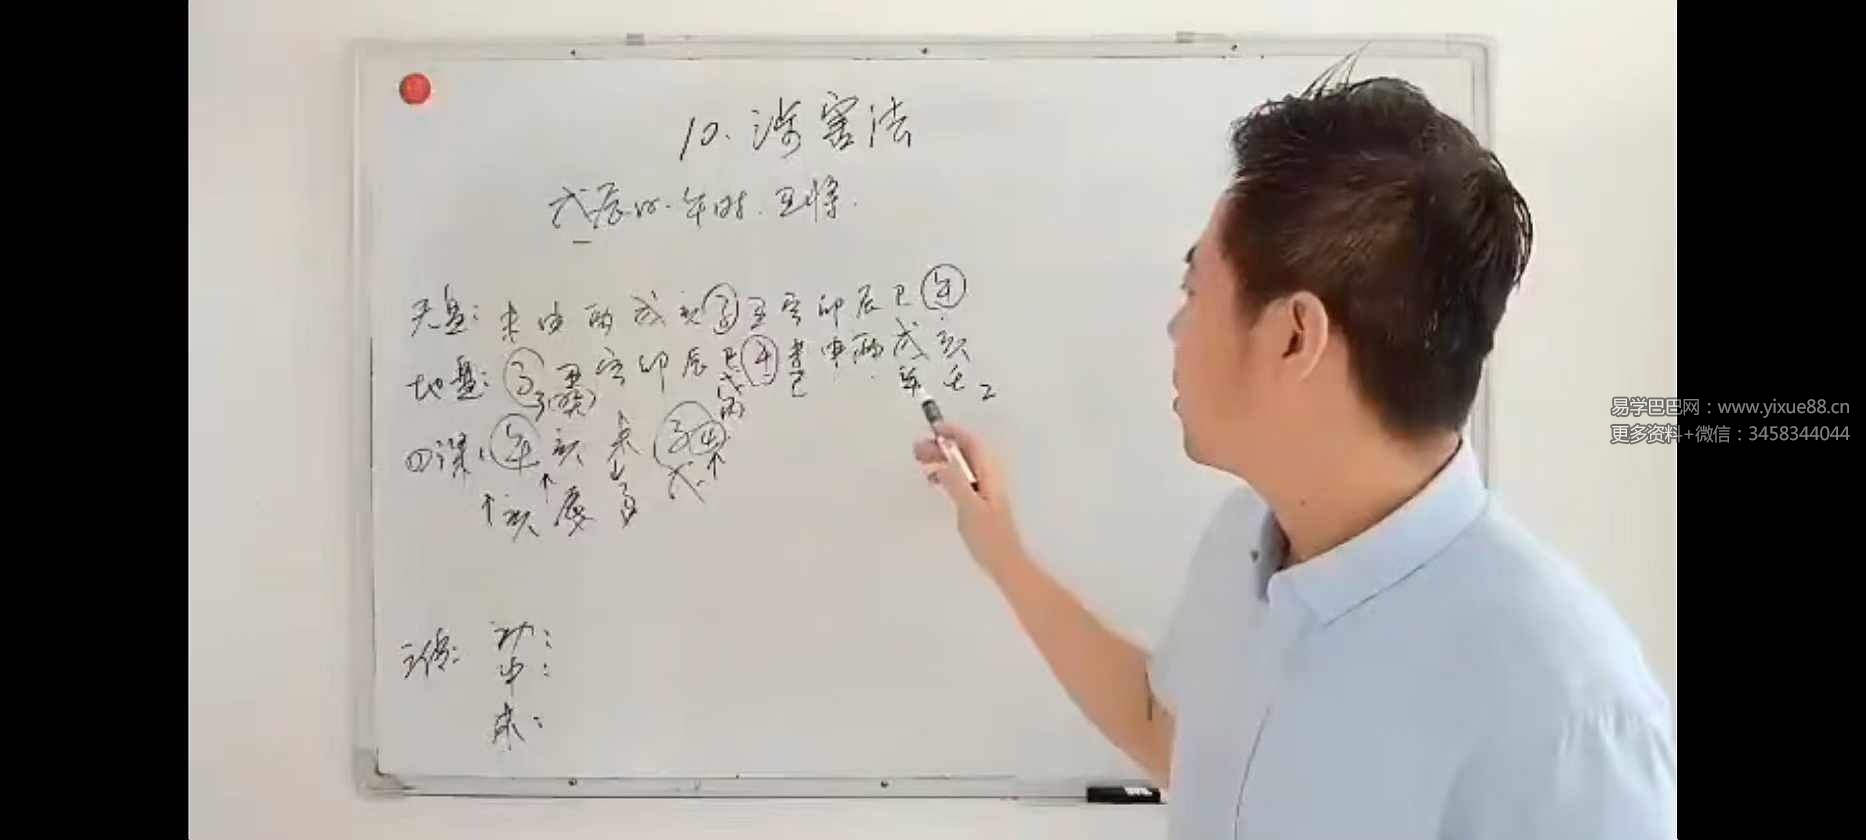 10. 涉害法
戊辰日. 午时. 丑将.
天盘: 未申酉戌亥子丑寅卯辰巳午
地盘: 子丑寅卯辰巳午未申酉戌亥
戊 己 辛 壬 2
丙
四课: 午亥未子
亥辰子戊
三传: 初:
中:
末:
易学巴巴网：www.yixue88.cn
更多资料+微信：3458344044